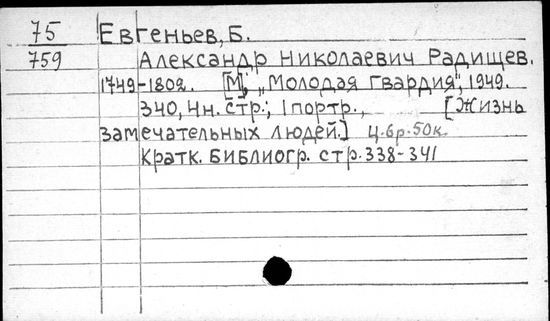 75 Евгеньев, Б.
759 Александр Николаевич Радищев.
1749-1802. [М], „Молодая Гвардия", 1949.
340, 4 н. стр.; 1 портр., [Жизнь
замечательных людей.] Ц. 6р. 50к.
Кратк. библиогр. стр. 338-341